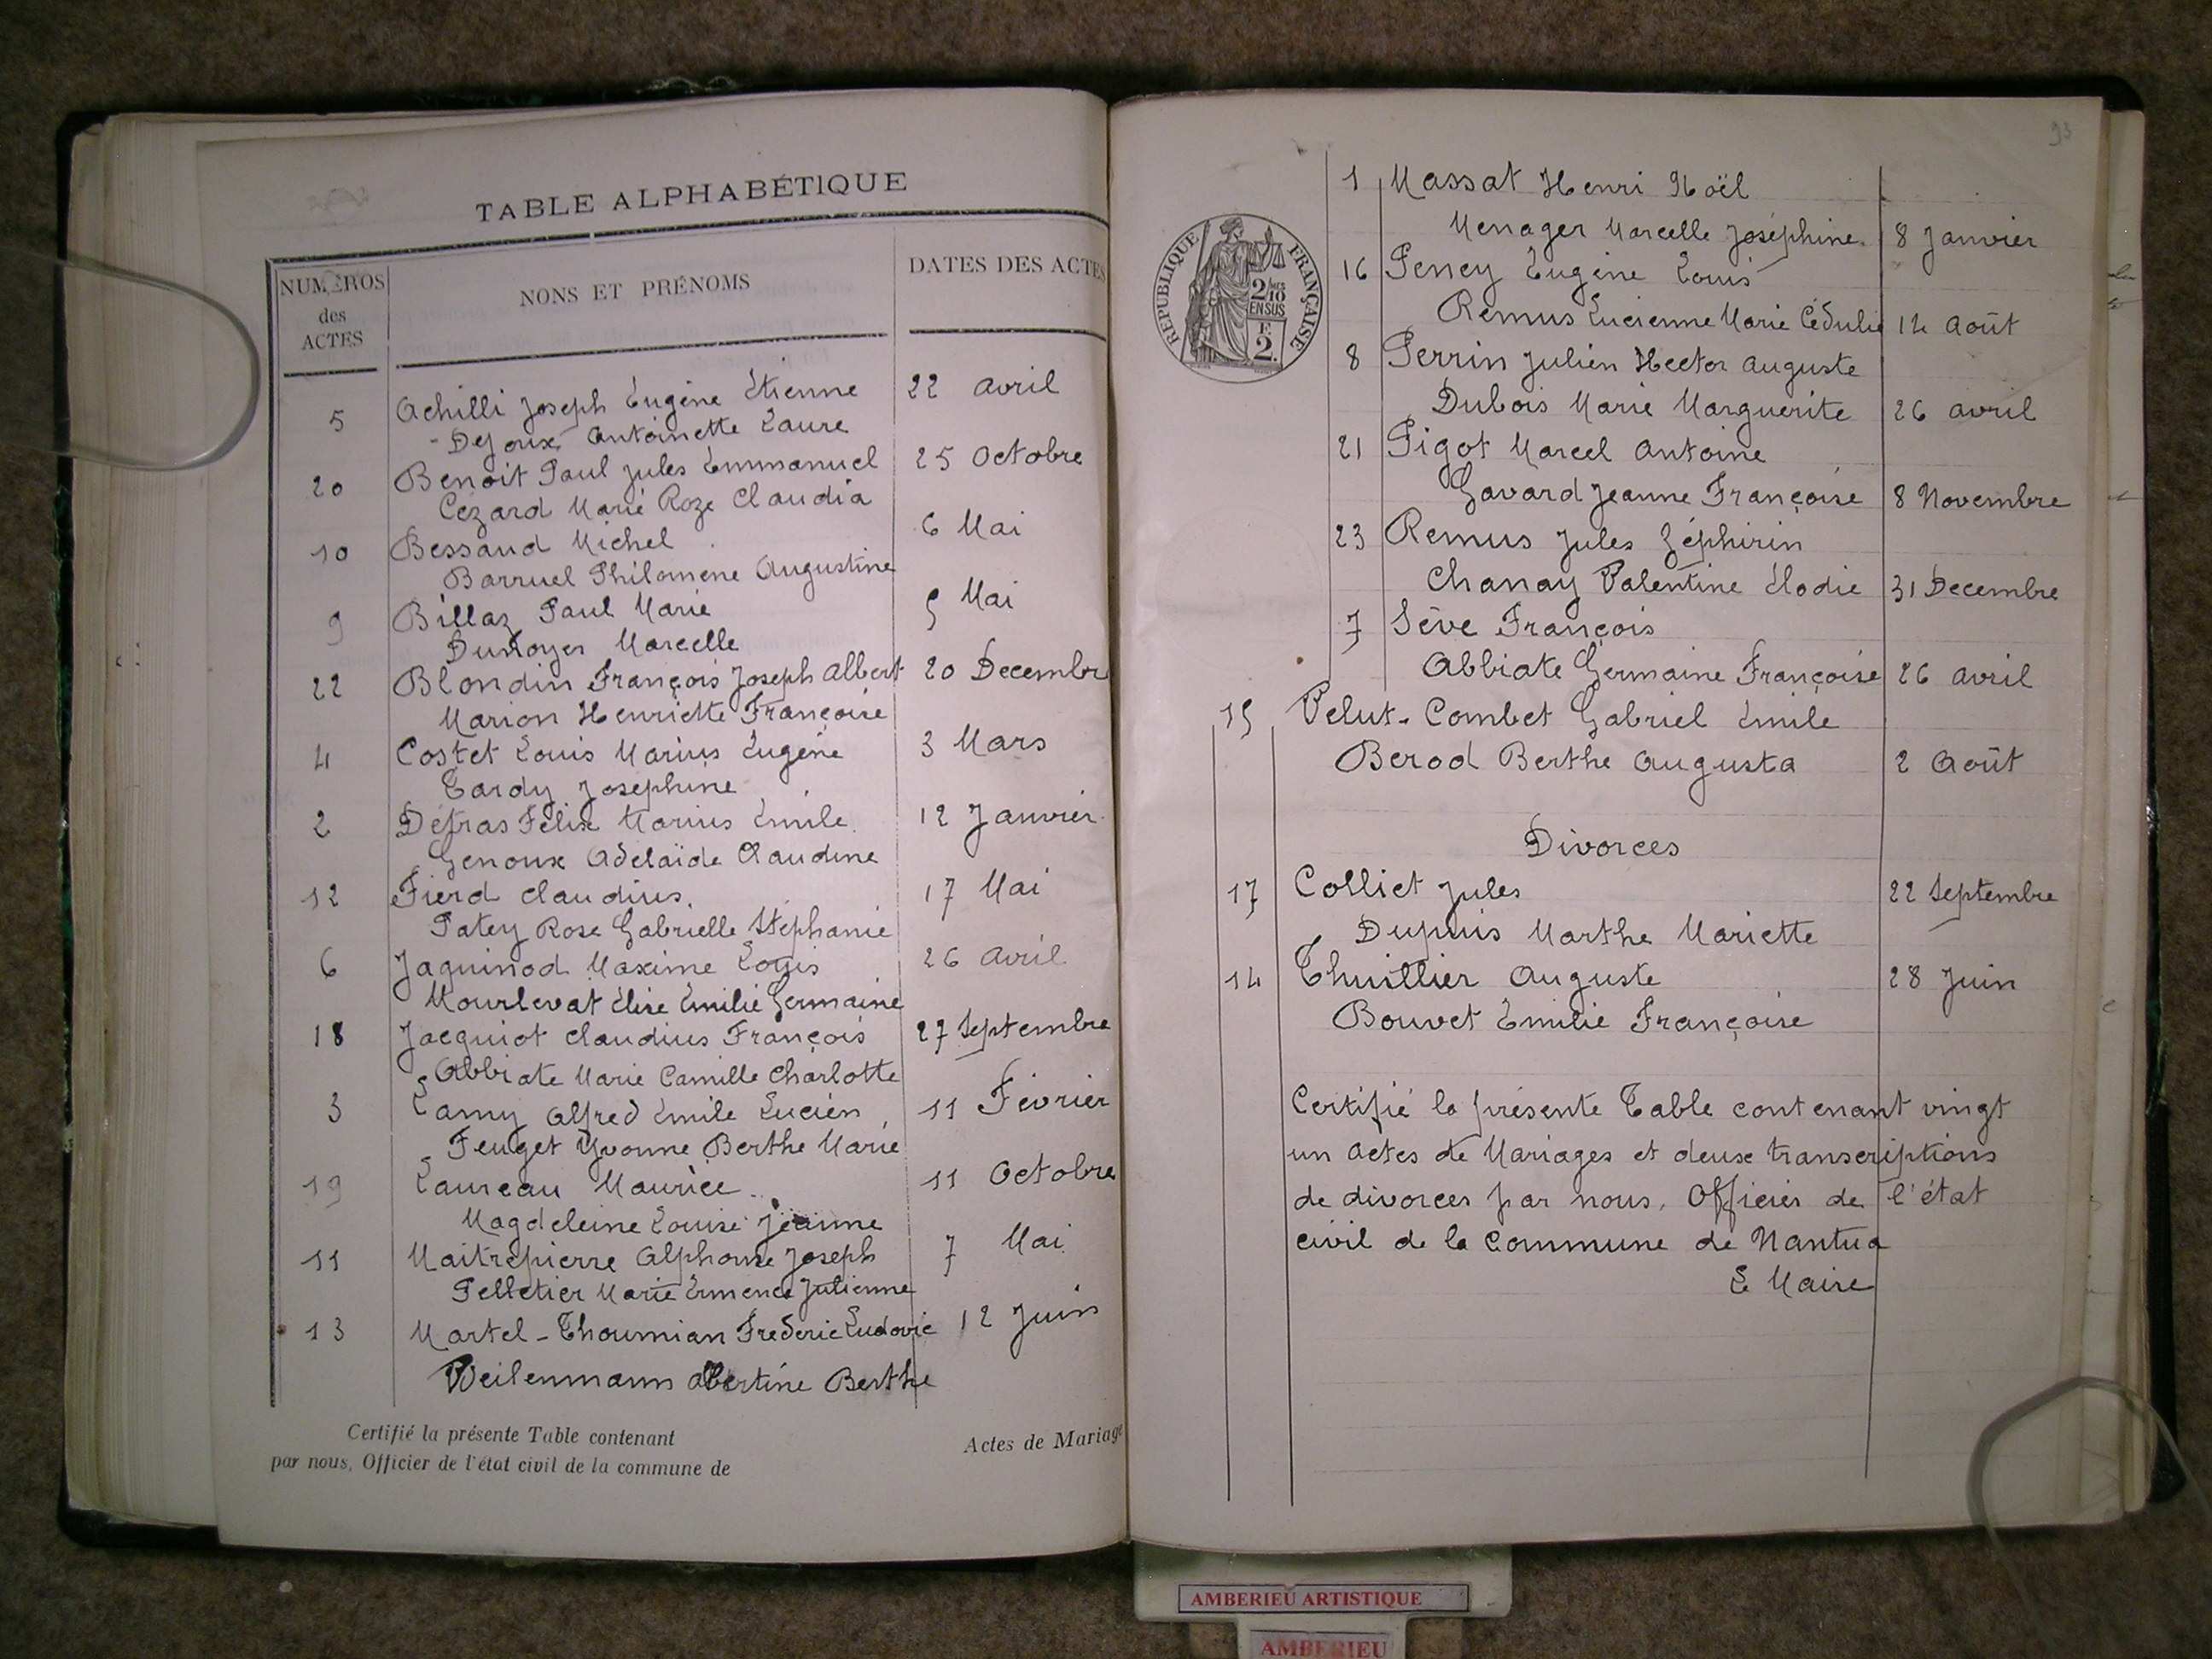 TABLE ALPHABÉTIQUE
NUMÉROS
des
ACTES
NONS ET PRÉNOMS
DATES DES ACTES
5 Achilli Joseph Eugène Etienne 22 Avril
- Dejoux Antoinette Laure
20 Benoit Paul Jules Emmanuel 25 Octobre
Cézard Marie Roze Claudia
10 Bessaud Michel 6 Mai
Barruel Philomene Augustine
9 Billaz Paul Marie 5 Mai
Dunoyer Marcelle
22 Blondin François Joseph Albert 20 Decembre
Marion Henriette Françoise
4 Costet Louis Marius Eugène 3 Mars
Tardy Josephine
2 Défras Félix Marius Emile 12 Janvier
Genoux Adelaïde Claudine
12 Fierd Claudius 17 Mai
Patey Rose Gabrielle Stéphanie
6 Jaquinod Maxime Louis 26 Avril
Mourlevat Elise Emilie Germaine
18 Jacquiot Claudius François 27 Septembre
Abbiate Marie Camille Charlotte
3 Lamy Alfred Emile Lucien 11 Février
Feuget Yvonne Berthe Marie
19 Laureau Maurice 11 Octobre
Magdeleine Louise Jeanne
11 Maitrepierre Alphonse Joseph 7 Mai
Pelletier Marie Ermence Julienne
13 Martel-Thoumian Frederic Ludovic 12 Juin
Weilenmann Albertine Berthe
Certifié la présente Table contenant Actes de Mariage
par nous, Officier de l'état civil de la commune de
93
RÉPUBLIQUE FRANÇAISE
2/10
EN SUS
2.
1 Massat Henri Noël
Menager Marcelle Joséphine 8 Janvier
16 Peney Eugène Louis
Remus Lucienne Marie Cédulie 14 Août
8 Perrin Julien Hector Auguste
Dubois Marie Marguerite 26 Avril
21 Pigot Marcel Antoine
Gavard Jeanne Françoise 8 Novembre
23 Remus Jules Zéphirin
Chanay Valentine Elodie 31 Decembre
7 Sève François
Abbiate Germaine Françoise 26 Avril
15 Velut-Combet Gabriel Emile
Berod Berthe Augusta 2 Août
Divorces
17 Colliet Jules 22 Septembre
Dupuis Marthe Mariette
14 Thuillier Auguste 28 Juin
Bouvet Emilie Françoise
Certifié la présente Table contenant vingt
un actes de Mariages et deux transcriptions
de divorces par nous, Officier de l'état
civil de la Commune de Nantua
Le Maire
AMBERIEU ARTISTIQUE
AMBERIEU